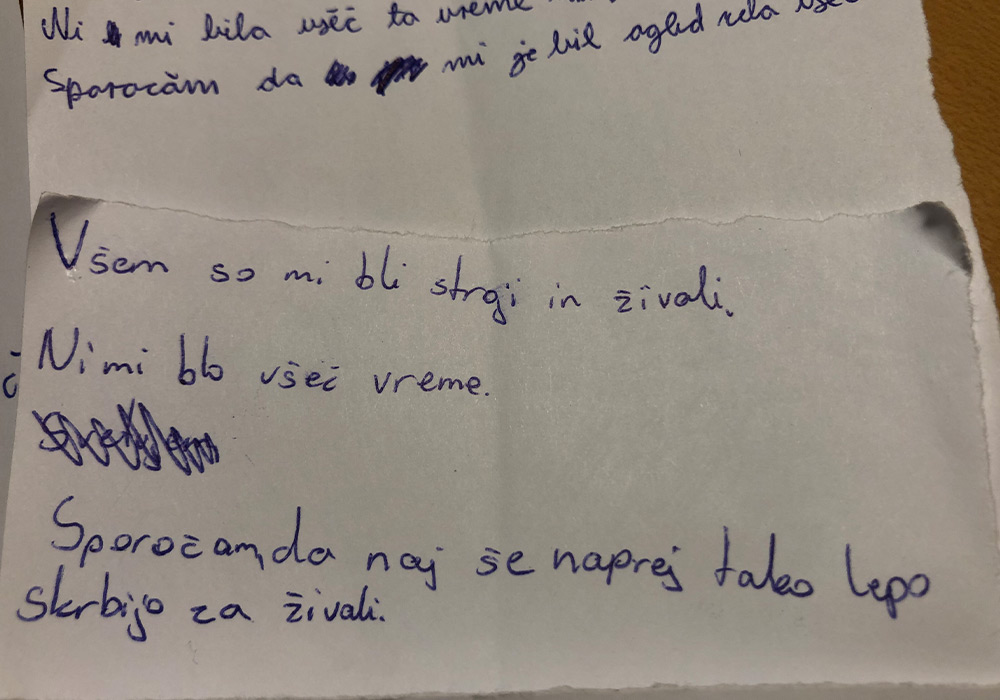 Ni mi bila všeč ta vreme
Sporočam da mi je bil ogled zela všeč
Všem so mi bli strgi in živali.
Ni mi blo všeč vreme.
Sporočam, da naj še naprej tako lepo
skrbijo za živali.
č